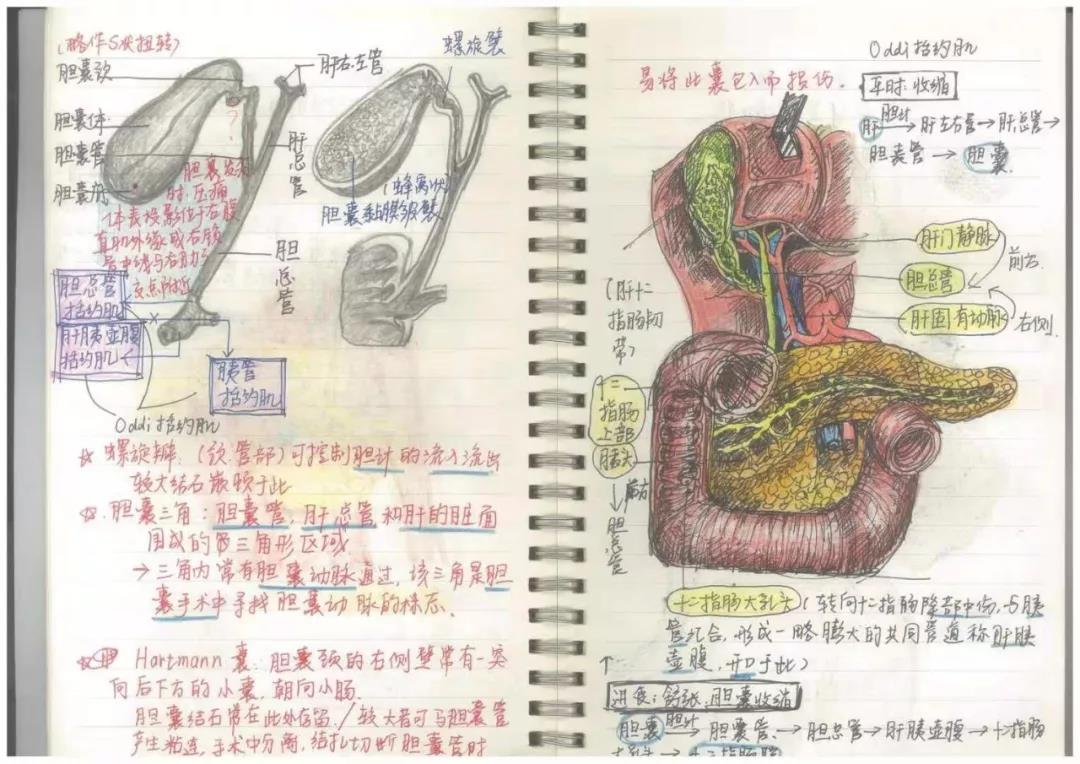 (略作S状扭转)
胆囊颈
胆囊体
胆囊管
胆囊底
肝右左管
肝总管
胆总管
螺旋襞
(蜂窝状)
胆囊黏膜皱襞
胆囊发炎
时,压痛
体表投影位于右腹
直肌外缘或右锁
骨中线与右肋弓
交点附近
胆总管
括约肌
肝胰壶腹
括约肌
胰管
括约肌
Oddi括约肌
☆ 螺旋瓣:(颈、管部)可控制胆汁的流入流出
较大结石嵌顿于此
☆. 胆囊三角:胆囊管,肝总管和肝的脏面
围成的三角形区域
→三角内常有胆囊动脉通过,该三角是胆
囊手术中寻找胆囊动脉的标志.
Hartmann囊:胆囊颈的右侧壁常有一突
向后下方的小囊,朝向小肠.
胆囊结石常在此处存留./较大者可与胆囊管
产生粘连,手术中分离,结扎切断胆囊管时
易将此囊包入而损伤.
Oddi括约肌
平时:收缩
肝 胆汁→肝左右管→肝总管→
胆囊管→胆囊.
肝门静脉
前方
胆总管
肝固有动脉
右侧
(肝十二指肠韧带)
十二指肠上部
胰头
前方
↓
胆总管
十二指肠大乳头(转向十二指肠降部中份,与胰
管汇合,形成一略膨大的共同管道称肝胰
壶腹,开口于此)
进食:舒张,胆囊收缩
胆囊 胆汁→胆囊管→胆总管→肝胰壶腹→十二指肠
大乳头→十二指肠腔